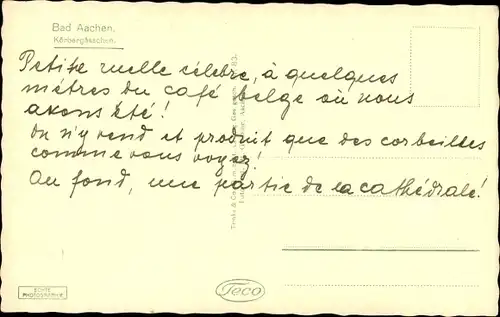 Bad Aachen.
Körbergässchen.
Petite ruelle célèbre, à quelques
mètres du café belge où nous
avons été!
On n'y vend et produit que des corbeilles
comme vous voyez!
Au fond, une partie de la cathédrale!
ECHTE
PHOTOGRAPHIE
Teco